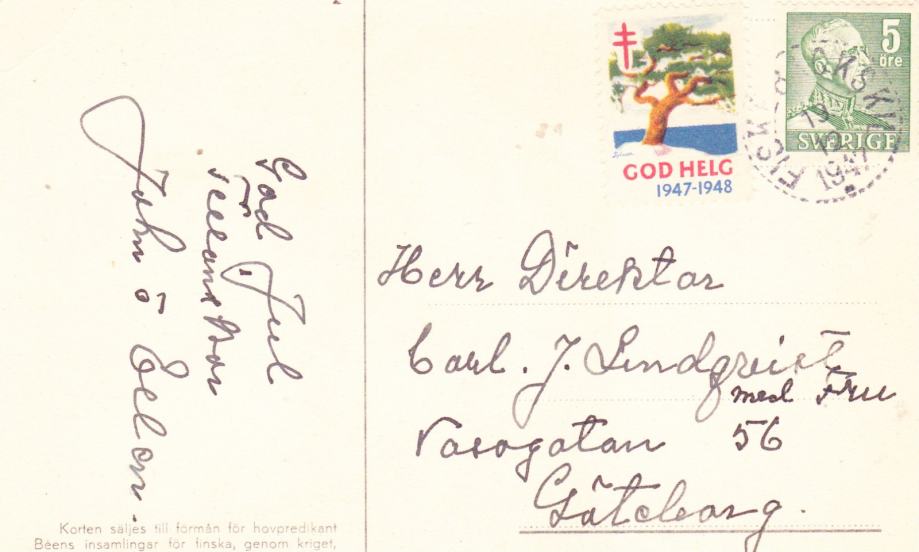 God Jul
Tillönskar
John o Ellen.
Korten säljes till förmån för hovpredikant
Béens insamlingar för finska, genom kriget,
GOD HELG
1947-1948
5
öre
SVERIGE
1947
Herr Direktor
Carl. J. Lindqvist
med Fru
Vasagatan 56
Göteborg.